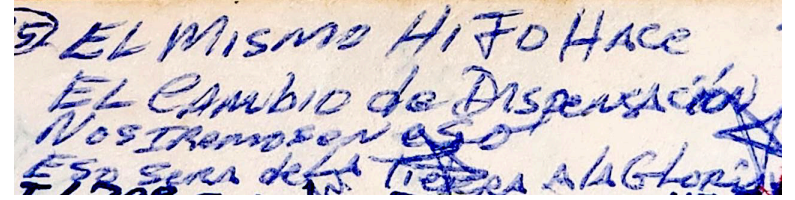 5) EL MISMO HIJO HACE
EL CAMBIO de DISPENSACIÓN
NOS IREMOS EN ESO
ESO SERA de LA TIERRA A LA GLORIA